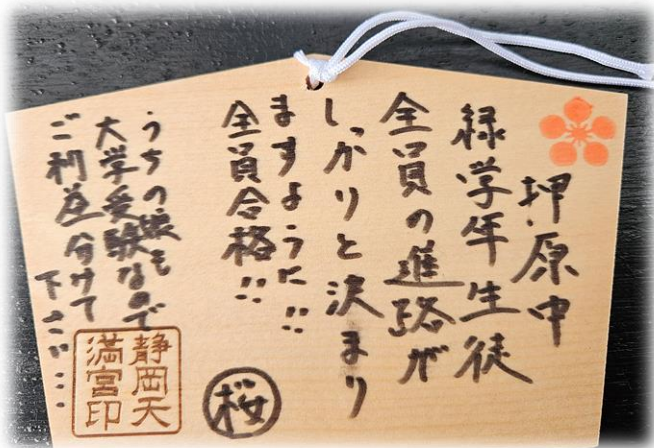 押原中
緑学年生徒
全員の進路が
しっかりと決まり
ますように!!
全員合格!!
桜
うちの娘も
大学受験なので
ご利益分けて
下さい…
静岡天
満宮印